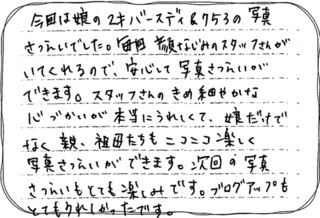 今回は娘の2才バースディ&753の写真
さつえいでした。毎回顔なじみのスタッフさんが
いてくれるので、安心して写真さつえいが
できます。スタッフさんのきめ細やかな
心づかいが本当にうれしくて、娘だけで
なく親、祖母たちもニコニコ楽しく
写真さつえいができます。次回の写真
さつえいもとても楽しみです。ブログアップも
とてもうれしかったです。